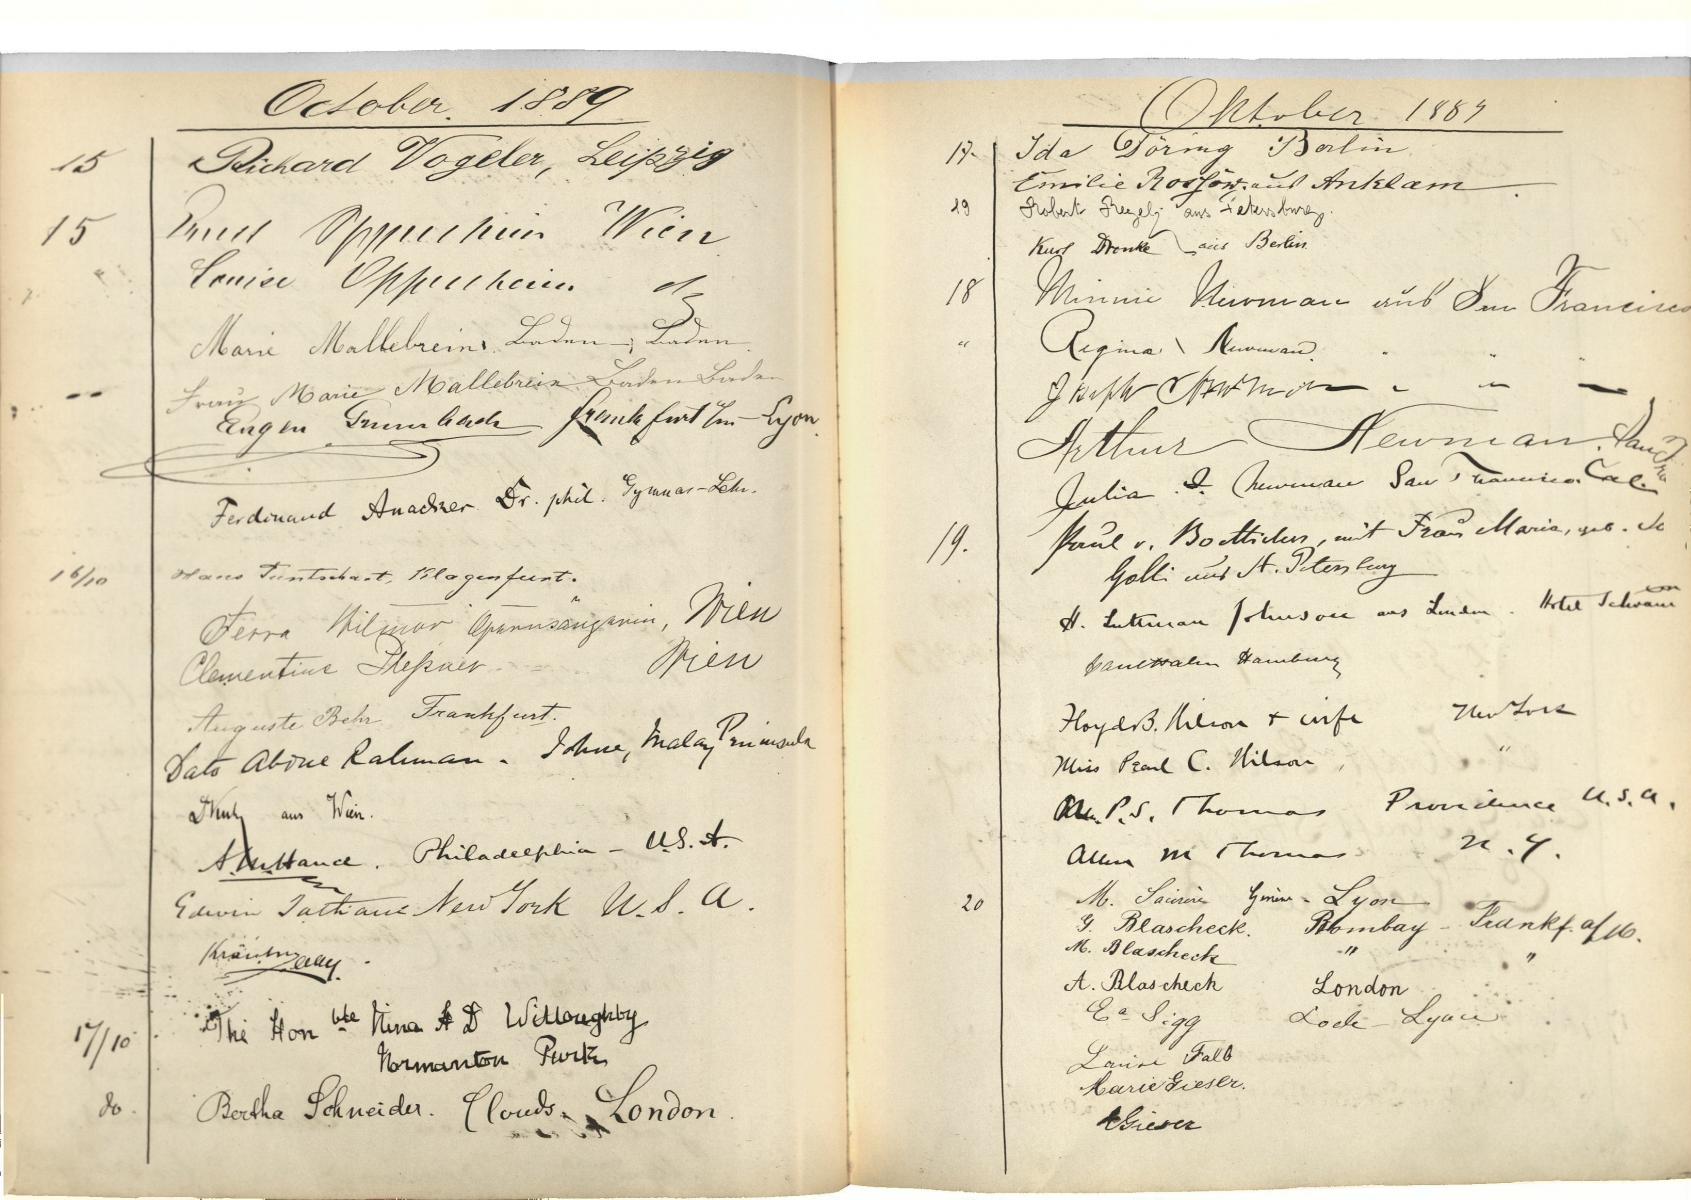 October. 1889
15 Richard Vogeler, Leipzig
15 Oppenheim Wien
Louise Oppenheim do
Marie Mallebrein, Baden-Baden
Frau Marie Mallebrein Baden Baden
Eugen Frankfurt a/m - Lyon.
Ferdinand Anacker Dr. phil. Gymnas-Lehr.
16/10 Hans Tuntschart, Klagenfurt.
Ferra Wilmar Opernsängerin, Wien
Clementine Plessner Wien
Auguste Behr Frankfurt.
Dato Abdul Rahman - Johore, Malay Peninsula
aus Wien.
Philadelphia - U.S.A.
Edwin New York U.S.A.
17/10 The Honble Nina A D Willoughby
Normanton Park
do. Bertha Schneider. Clouds. London.
Oktober 1889
17. Ida Döring Berlin
Emilie aus Anklam
19 Robert aus Petersburg.
Kurt Dronke aus Berlin
18 Minnie Newman aus San Francisco
" Regina Newman. " " "
Joseph Newman " " "
Arthur Newman. San
Julia Newman San Francisco. Cal
19. Paul v. Boetticher, mit Frau Maria, geb.
Golli aus St. Petersburg
H. Luttman Johnson aus London. Hotel
Hamburg
Floyd B. Wilson + wife New York
Miss Pearl C. Wilson, "
P. S. Thomas Providence U.S.A.
Allen M Thomas N.Y.
20 M. Lyon
G. Blascheck. Bombay - Frankf. a/M.
M. Blascheck " "
A. Blascheck London
Ea Sigg Lyon
Louise Falb
Marie Gieser.
Gieser